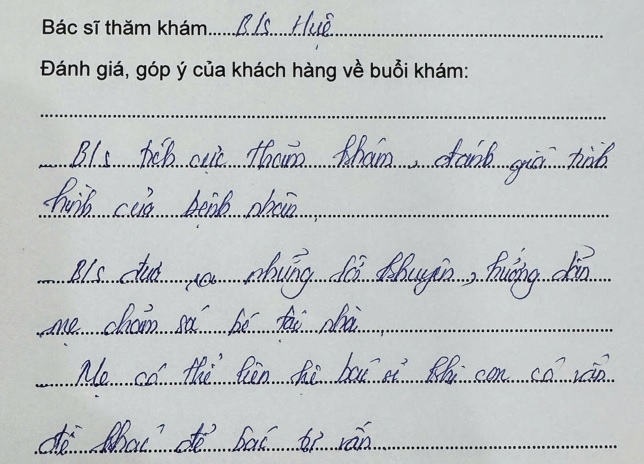 Bác sĩ thăm khám.....B/s Huệ
Đánh giá, góp ý của khách hàng về buổi khám:
B/s tích cực thăm khám, đánh giá tình
hình của bệnh nhân.
B/s đưa ra những lời khuyên, hướng dẫn
mẹ chăm sóc bé tại nhà.
Mẹ có thể liên hệ bác sĩ khi con có vấn
đề khác để bác tư vấn.